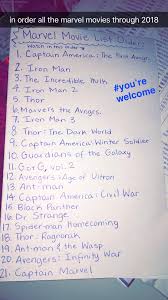 in order all the marvel movies through 2018
Marvel Movie List Order:
Watch in this order
1. Captain America: The First Aveng.
2. Iron Man
3. The Incredible Hulk
4. Iron Man 2
5. Thor
6. Marvel's the Avengers
7. Iron Man 3
8. Thor: The Dark World
9. Captain America: Winter Soldier
10. Guardians of the Galaxy
11. GotG, vol. 2
12. Avengers: Age of Ultron
13. Ant-man
14. Captain America: Civil War
15. Black Panther
16. Dr. Strange
17. Spider-man Homecoming
18. Thor: Ragnarok
19. Ant-man & the Wasp
20. Avengers: Infinity War
21. Captain Marvel
#you're
welcome